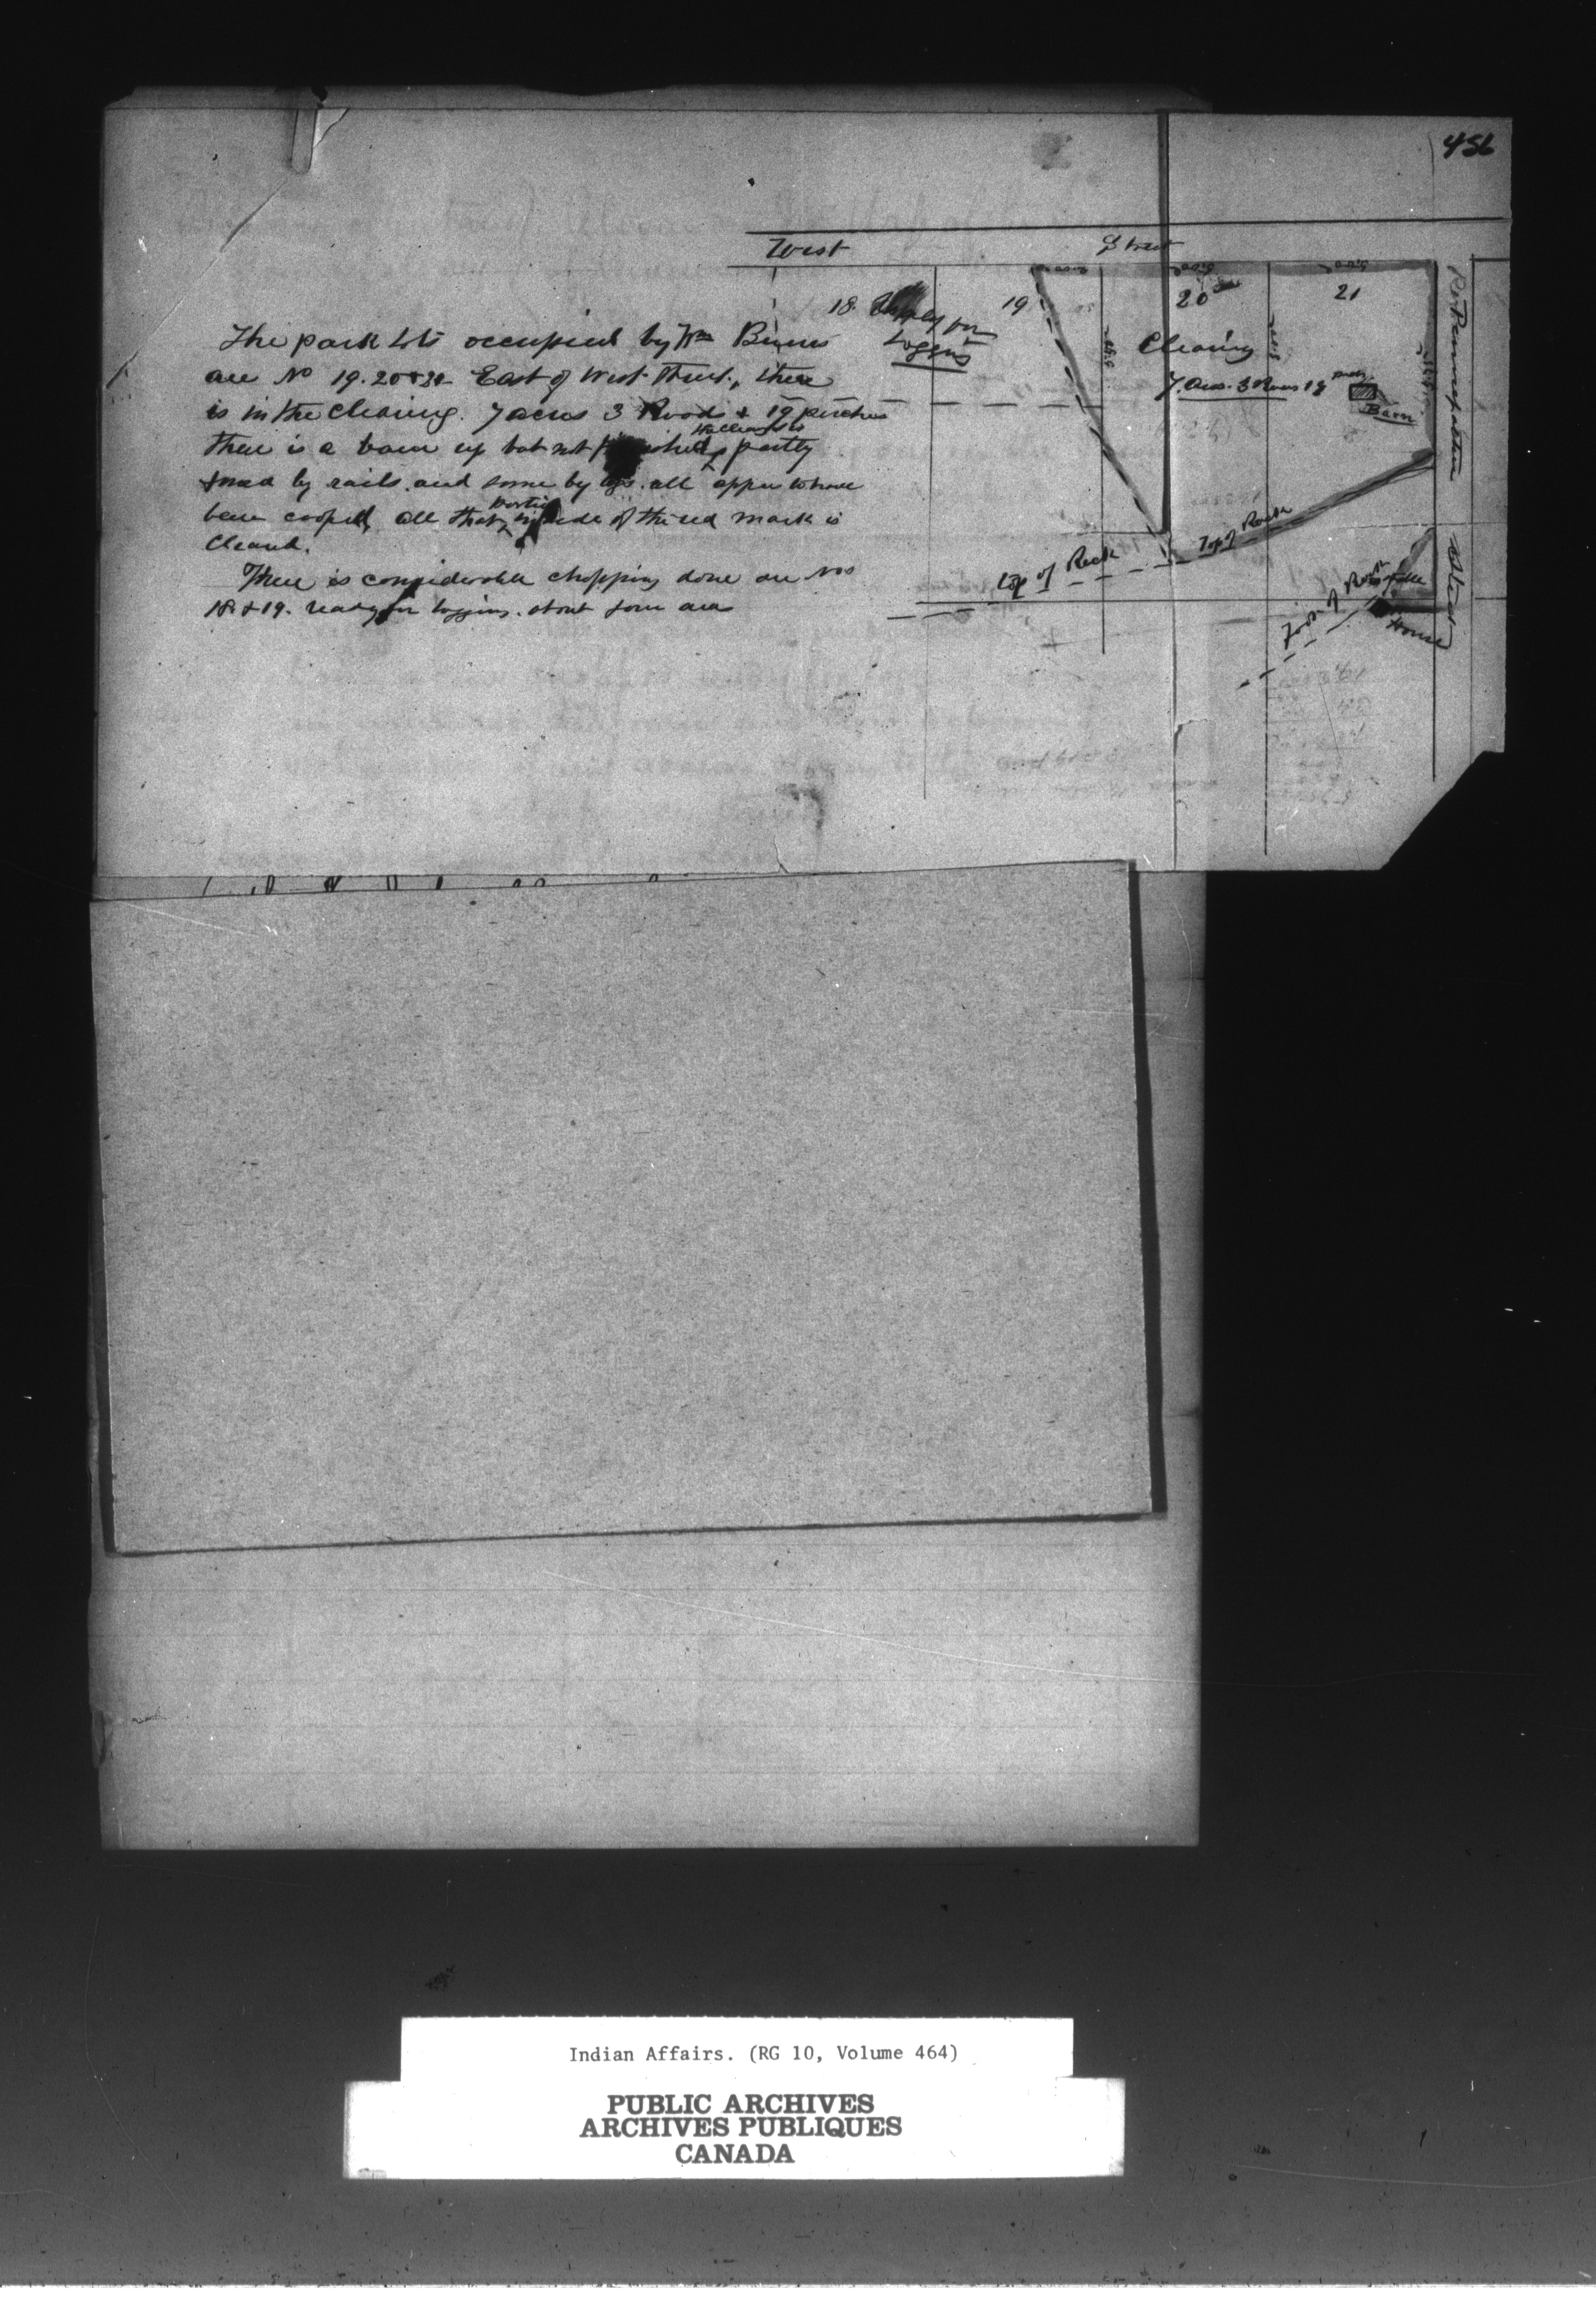 456
West Street
18 19 20 21
Logging
Clearing
7. Acres. 3 Roods 19
Barn
Top of Rock
top of Rock
Foot of Rock
House
Street
The park lots occupied by Wm Binns
are No 19. 20 & East of West Street, there
is in the clearing. 7 acres 3 Roods & 19 perches
there is a barn up but not partly
by rails. and some by logs. all appear to have
been All that portion inside of the red mark is
Cleared.
There is considerable chopping done on Nos
18 & 19. ready for logging. about four acres
Indian Affairs. (RG 10, Volume 464)
PUBLIC ARCHIVES
ARCHIVES PUBLIQUES
CANADA